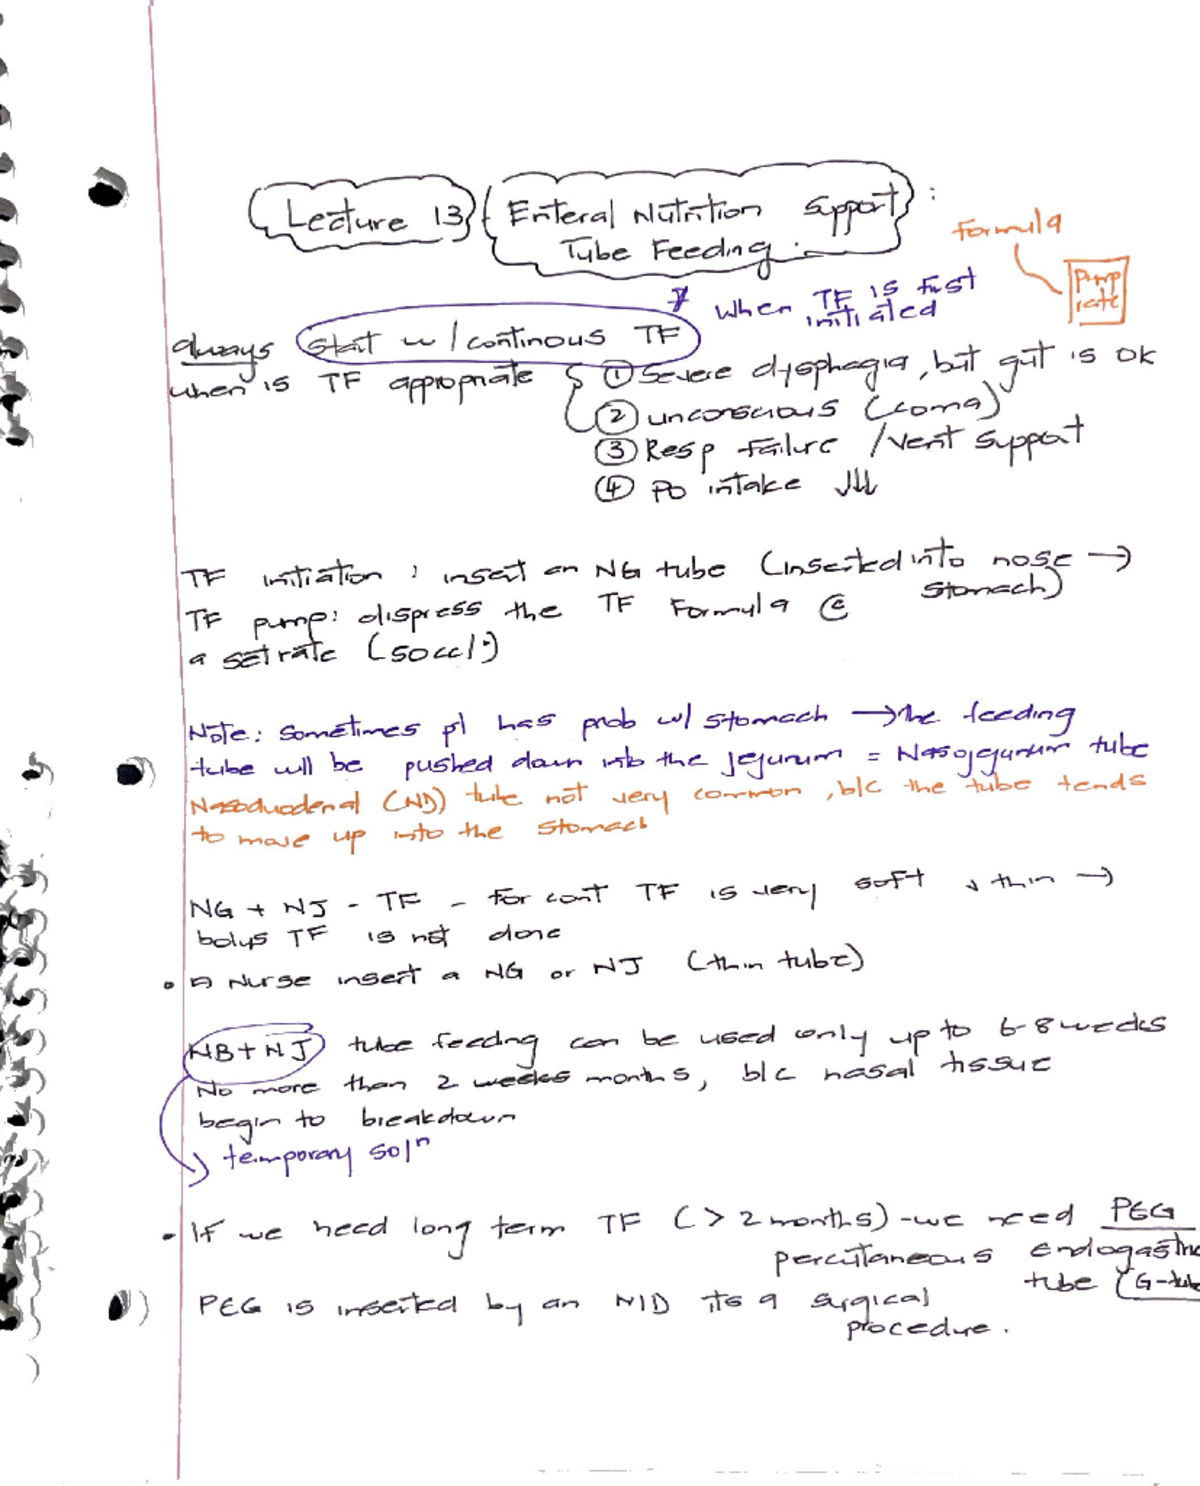 Lecture 13 Enteral Nutrition Support :
Tube Feeding.
Formula
Pump rate
* when TF is first initiated
always start w/ continous TF
when is TF appropriate
① Severe dysphagia, but gut is ok
② unconscious (coma)
③ Resp failure / vent support
④ Po intake ↓↓↓
TF initiation : insert an NG tube (inserted into nose → stomach)
TF pump: dispress the TF Formula @
a set rate (50cc/
Note: sometimes pt has prob w/ stomach → the feeding
tube will be pushed down into the Jejunum = Nasojejunum tube
Nasoduodenal (ND) tube not very common, b/c the tube tends
to move up into the stomach
NG + NJ - TF - for cont TF is very soft & thin →
bolus TF is not done
• Nurse insert a NG or NJ (thin tube)
NB + NJ tube feeding can be used only up to 6-8 weeks
No more than 2 weeks months, b/c nasal tissue
begin to breakdown
temporary solⁿ
• If we need long term TF (> 2 months) - we need PEG
percutaneous endogastric
tube (G-tube
PEG is inserted by an MD its a surgical
procedure.